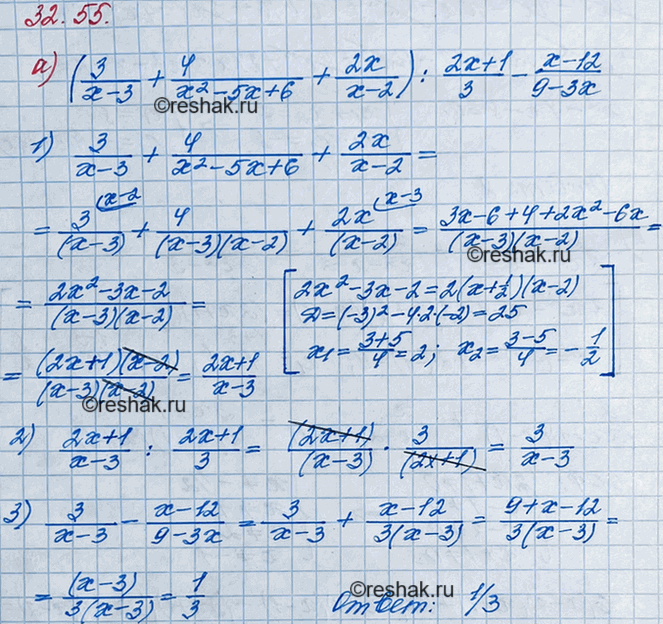 32.55.
а) (3/(x-3) + 4/(x²-5x+6) + 2x/(x-2)) : (2x+1)/3 - (x-12)/(9-3x)
©reshak.ru
1) 3/(x-3) + 4/(x²-5x+6) + 2x/(x-2) =
= 3^(x-2/(x-3) + 4/((x-3)(x-2)) + 2x^(x-3/(x-2) = (3x-6+4+2x²-6x)/((x-3)(x-2)) =
= (2x²-3x-2)/((x-3)(x-2)) = [2x²-3x-2=2(x+1/2)(x-2)
D=(-3)²-4·2·(-2)=25
x₁=(3+5)/4=2; x₂=(3-5)/4=-1/2]
= ((2x+1)(x-2))/((x-3)(x-2)) = (2x+1)/(x-3)
©reshak.ru
2) (2x+1)/(x-3) : (2x+1)/3 = (2x+1)/(x-3) · 3/(2x+1) = 3/(x-3)
3) 3/(x-3) - (x-12)/(9-3x) = 3/(x-3) + (x-12)/(3(x-3)) = (9+x-12)/(3(x-3)) =
= (x-3)/(3(x-3)) = 1/3 Ответ: 1/3
©reshak.ru